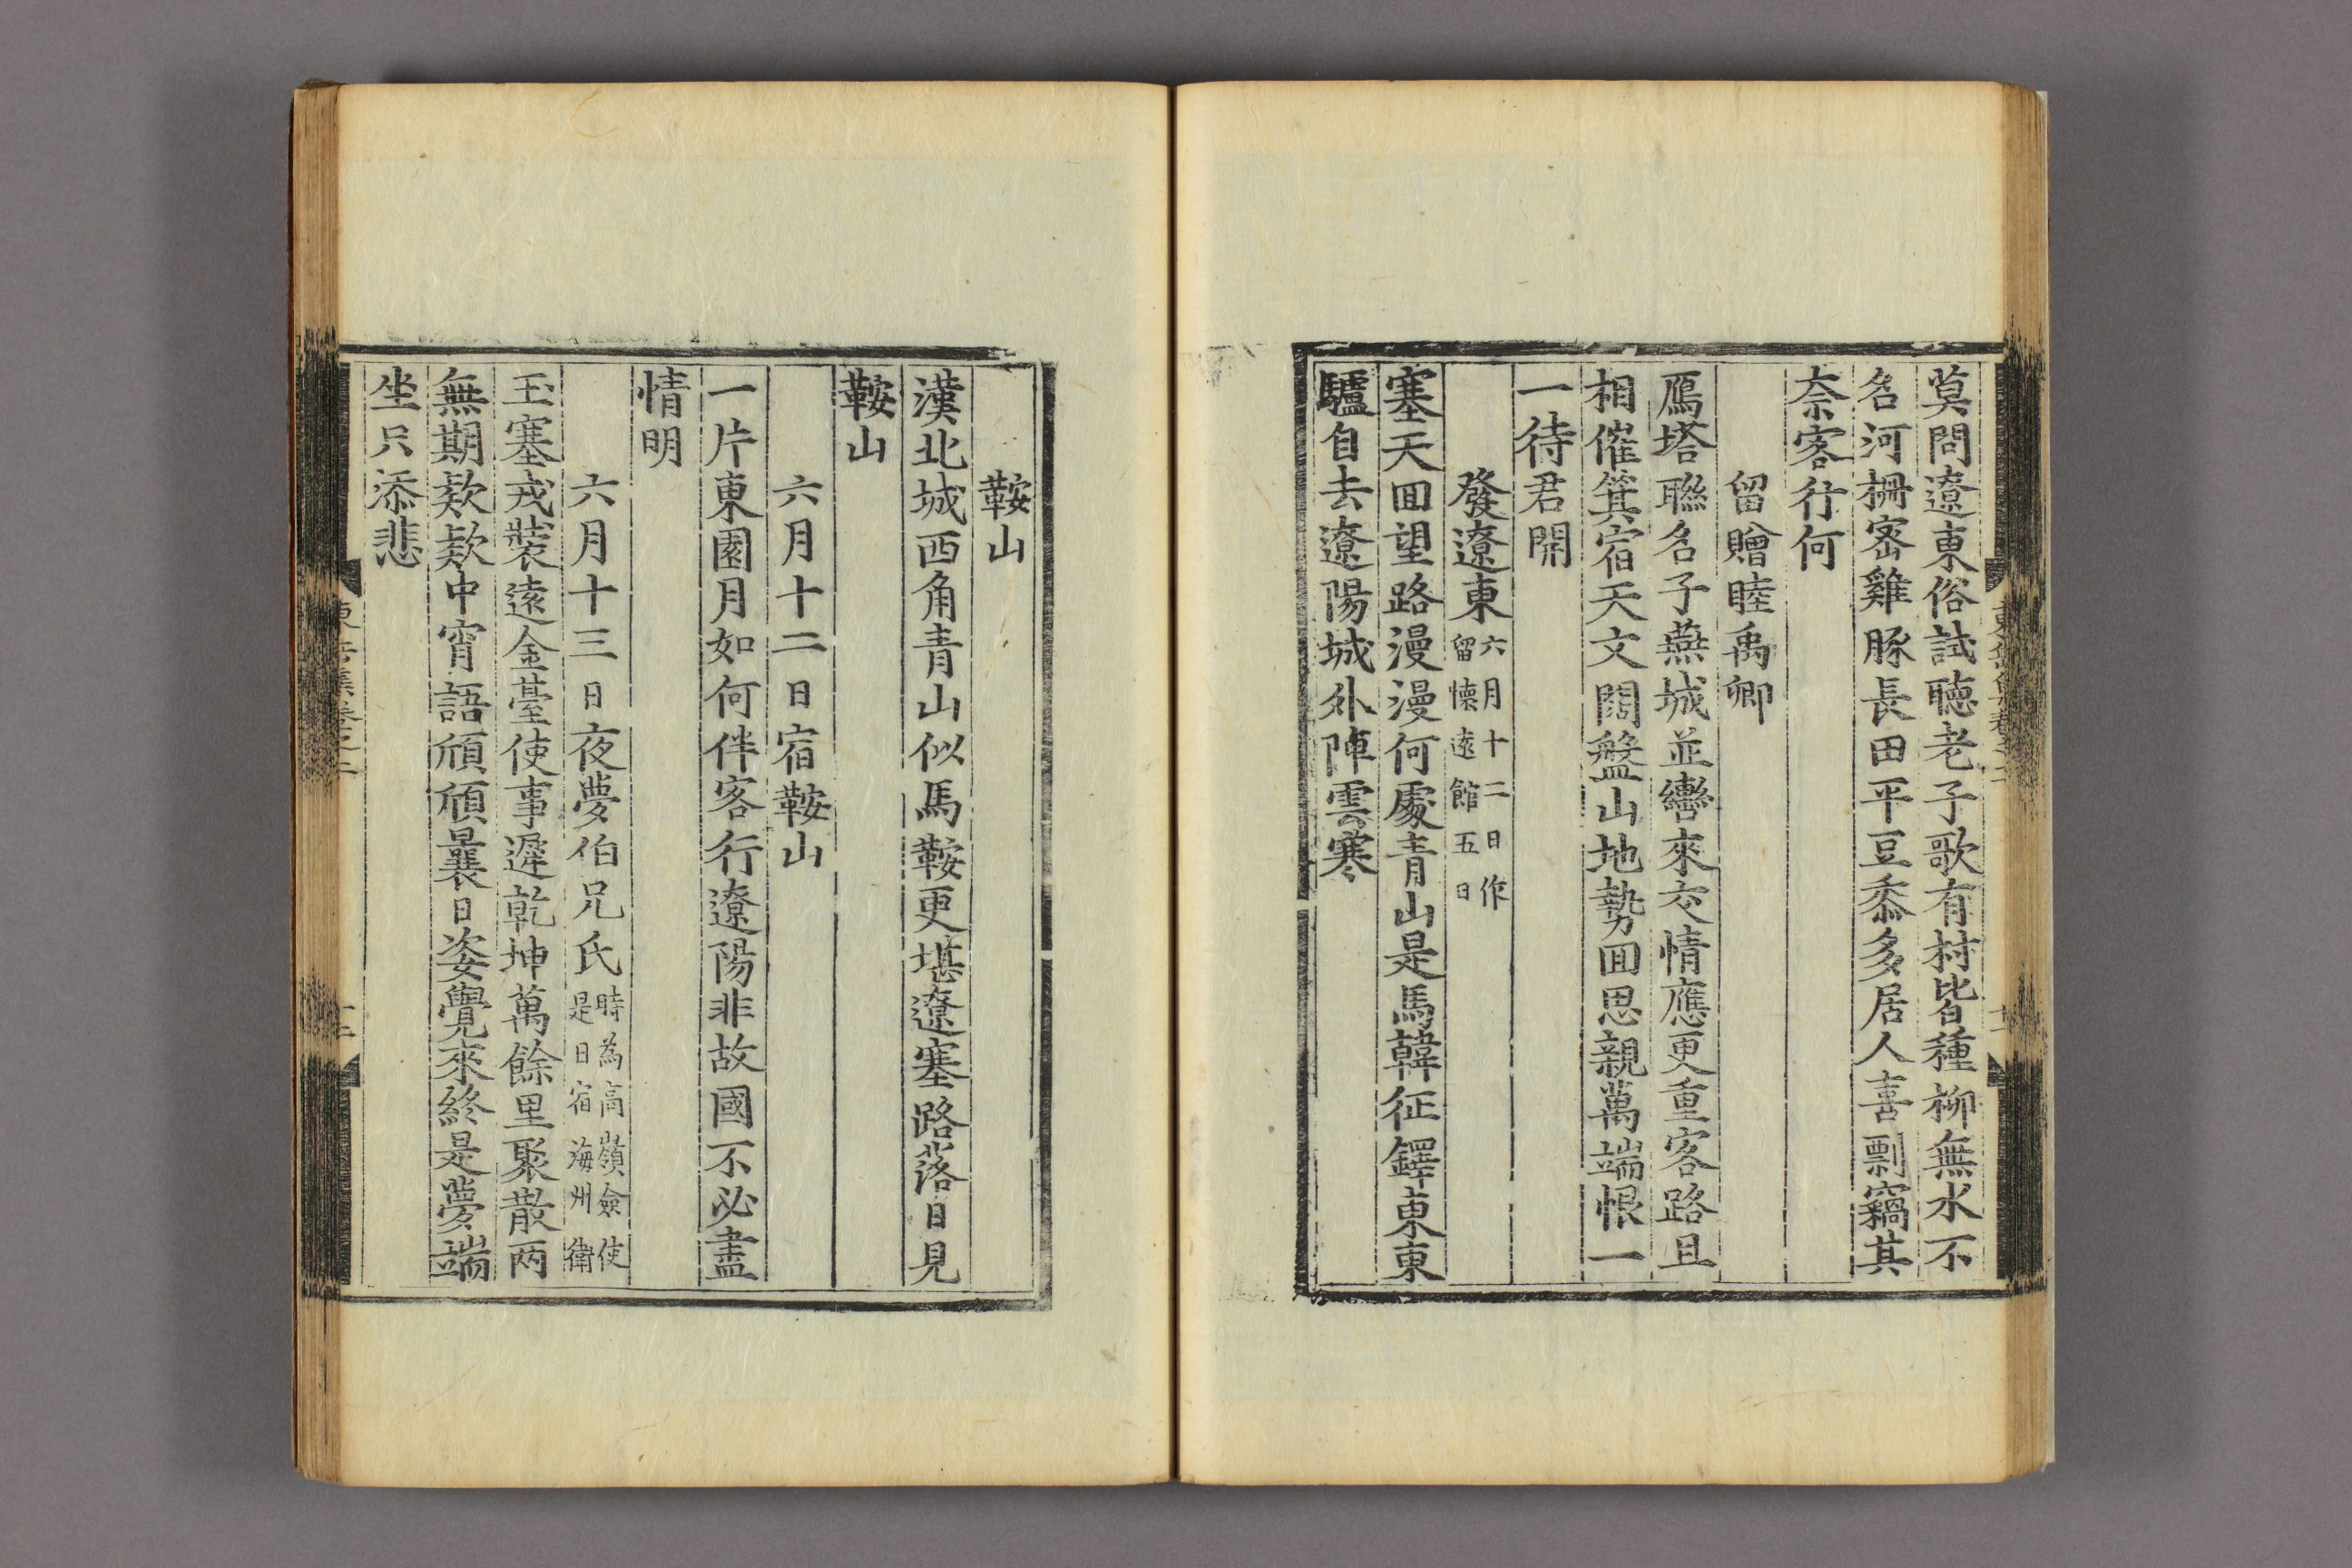 莫問遼東俗試聽老子歌有村皆種柳無水不
名河柵密雞豚長田平豆黍多居人喜剽竊其
奈客行何
留贈睦禹卿
鴈塔聯名子燕城並轡來交情應更重客路且
相催箕宿天文闊盤山地勢回思親萬端恨一
一待君開
發遼東六月十二日作
留懷遠館五日
塞天回望路漫漫何處青山是馬韓征鐸東東
驢自去遼陽城外陣雲寒
鞍山
漢北城西角青山似馬鞍更堪遼塞路落日見
鞍山
六月十二日宿鞍山
一片東園月如何伴客行遼陽非故國不必盡
情明
六月十三日夜夢伯兄氏時為高嶺僉使
是日宿海州衛
玉塞戎裝遠金臺使事遲乾坤萬餘里聚散兩
無期欵欵中宵語頎頎曩日姿覺來終是夢端
坐只添悲